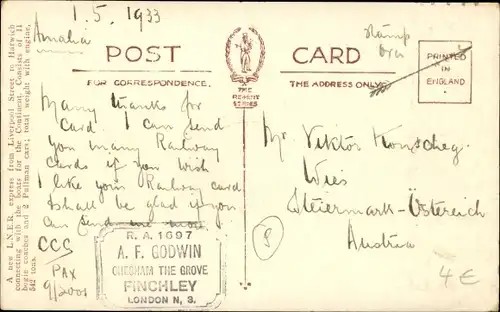 1.5.1933
Amalia
POST CARD
FOR CORRESPONDENCE.
THE ADDRESS ONLY
THE
REGENT
SERIES
stamp
over
PRINTED
IN
ENGLAND
A new L.N.E.R. express from Liverpool Street to Harwich
connecting with the boats for the Continent. Consists of 11
bogie coaches and 2 Pullman cars; total weight with engine,
542 tons.
Many thanks for
Card I can send
you many Railway
Cards if you wish
I like your Railway card
& shall be glad if you
can send me more
CCC
PAX
9/2001
R.A. 1697
A. F. GODWIN
CHESHAM THE GROVE
FINCHLEY
LONDON N, 3.
Mr. Viktor
Wies
Steiermark-Östereich
Austria
8
4€